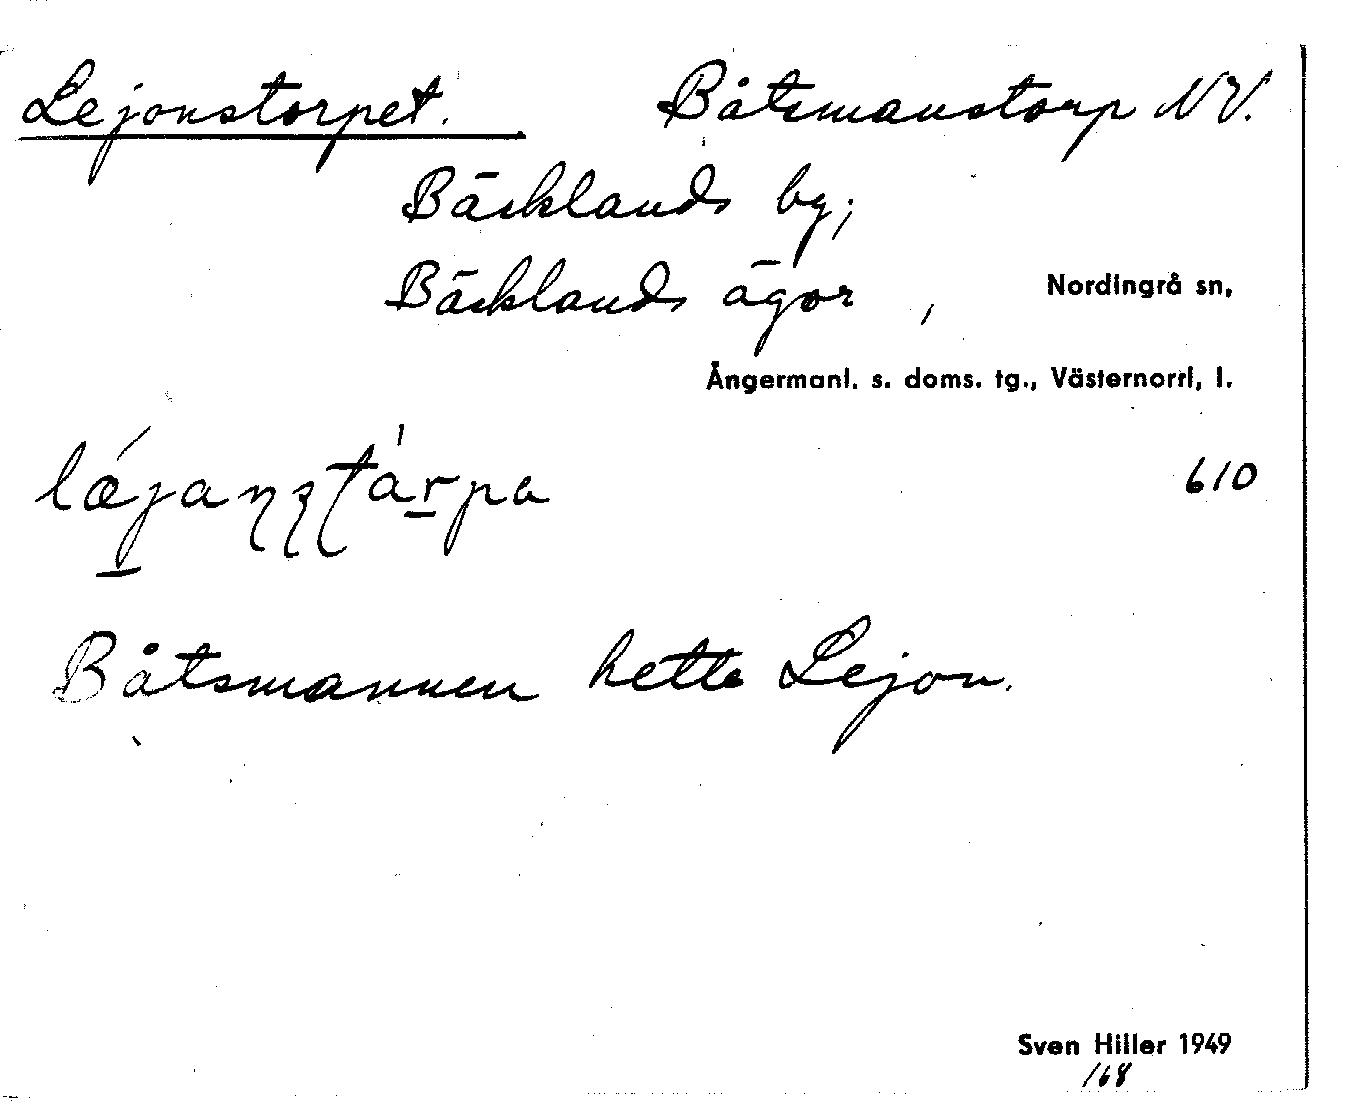 Lejonstorpet. Båtsmanstorp NV.
Bäcklands by;
Bäcklands ägor, Nordingrå sn,
Ångermanl. s. doms. tg., Västernorrl, l.
610
Båtsmannen hette Lejon.
Sven Hiller 1949
168